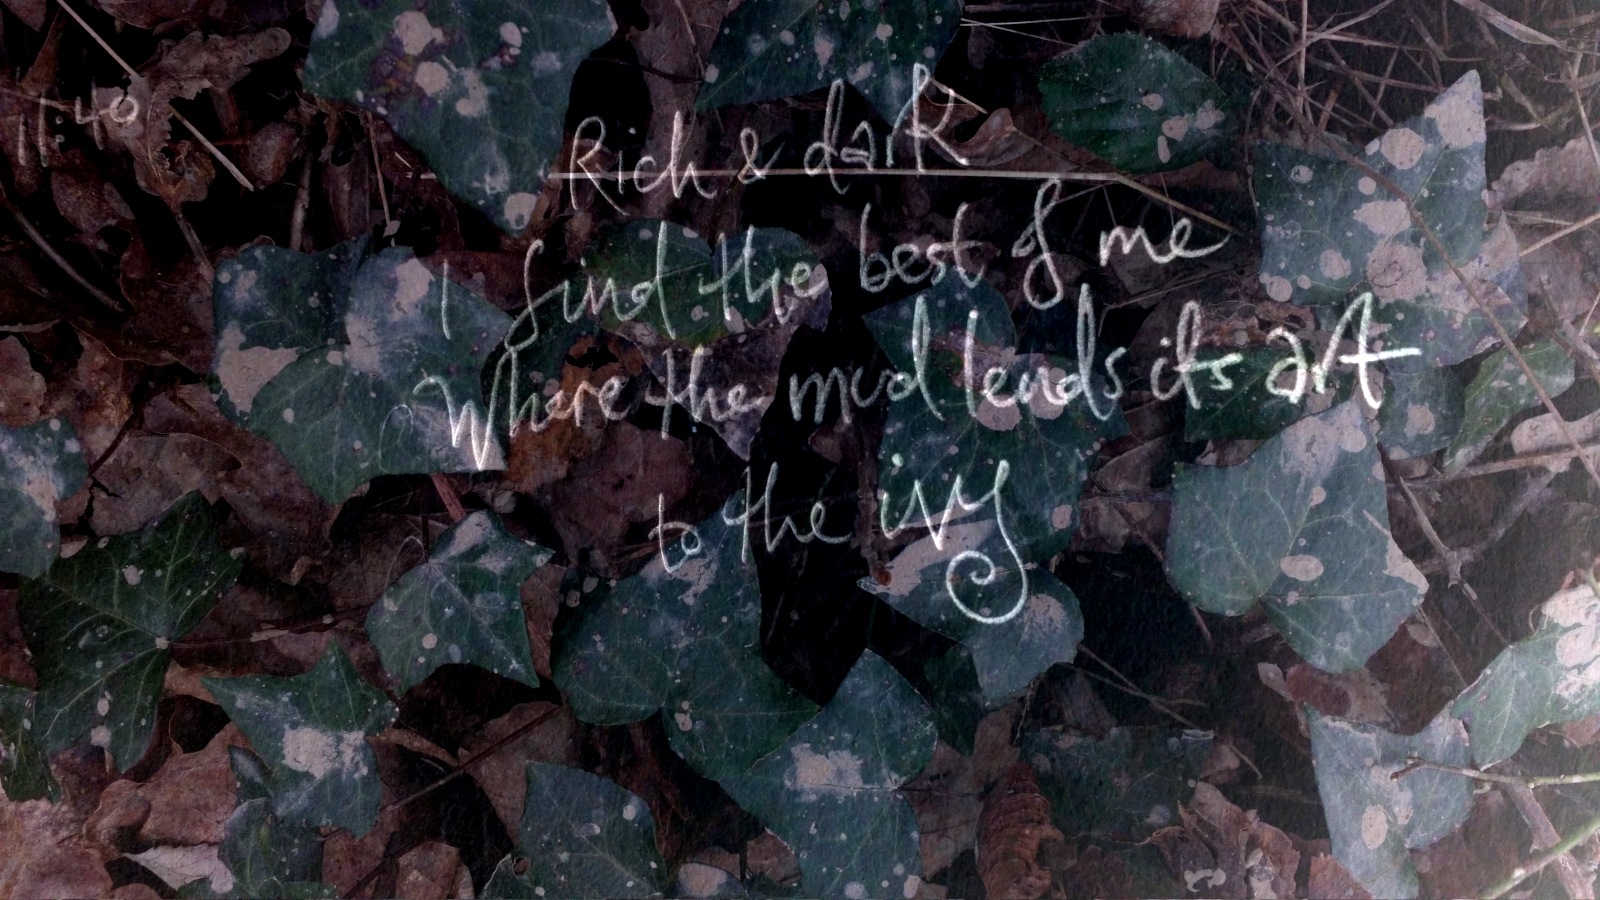 11:40
Rich & dark
I find the best of me
Where the mud lends its art
to the ivy